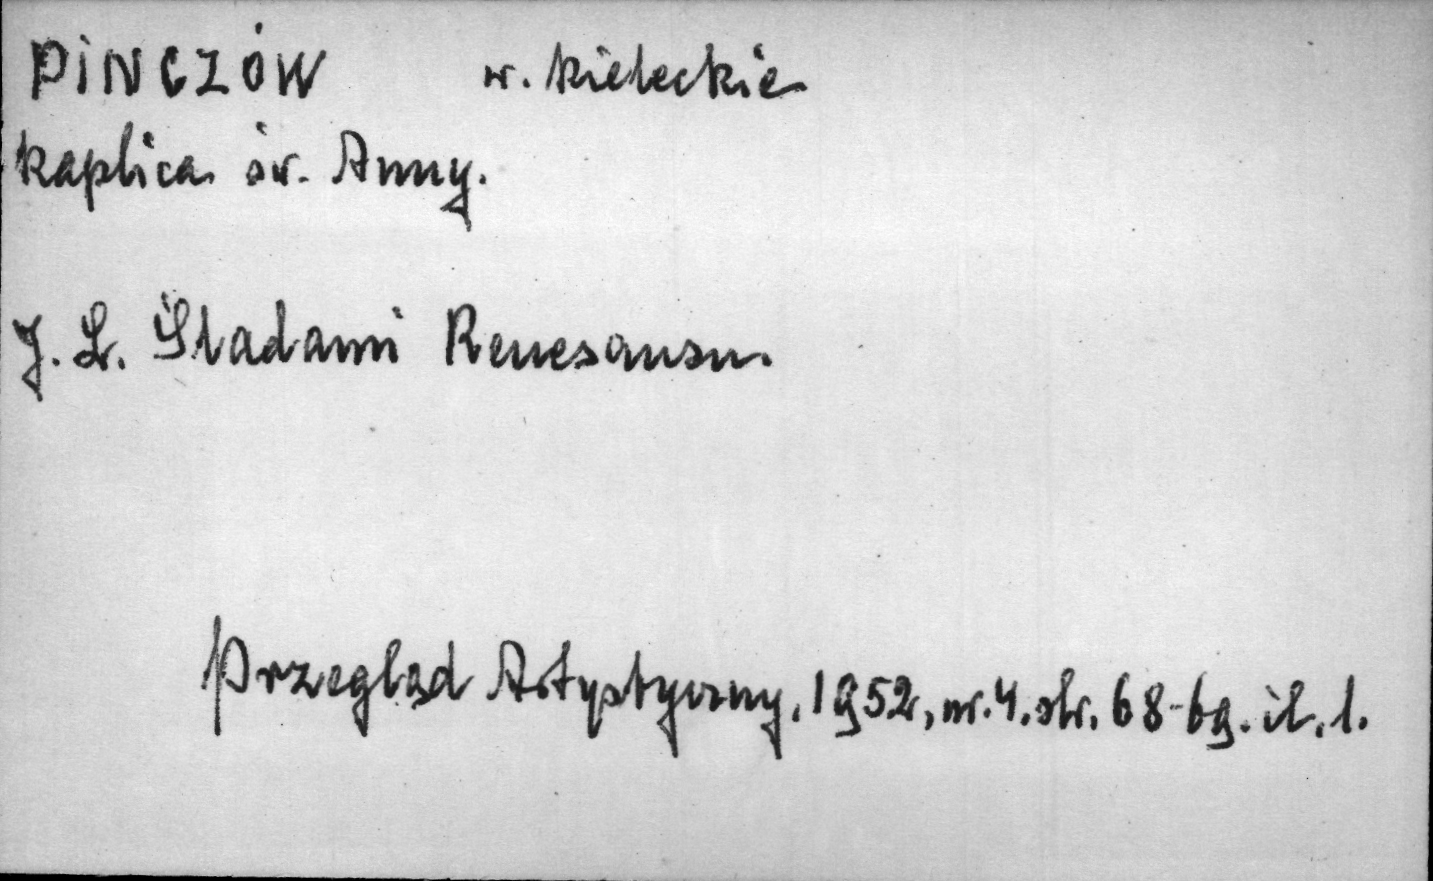 PINCZÓW w. kieleckie
kaplica św. Anny.
J. L. Śladami Renesansu.
Przegląd Artystyczny, 1952, nr. 4. str. 68-69. il. 1.